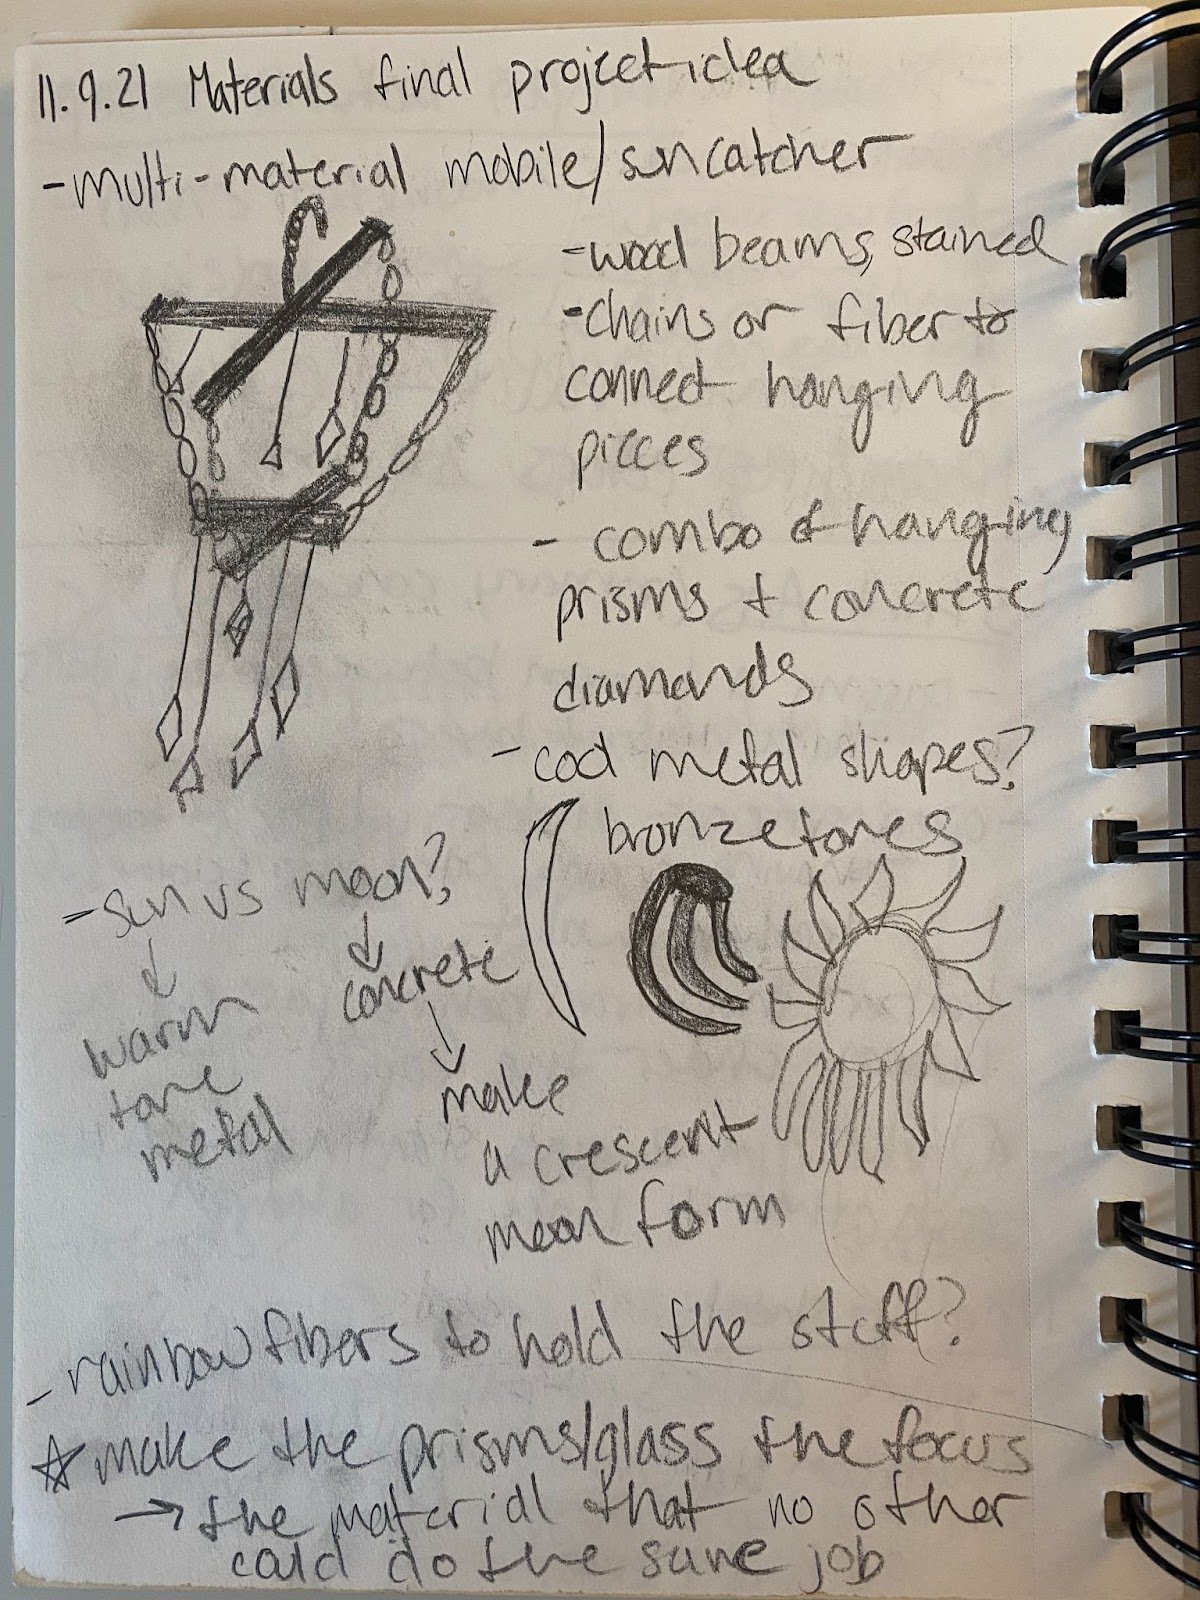 11.9.21 Materials final project idea
- multi-material mobile/suncatcher
- wood beams, stained
- chains or fiber to
connect hanging
pieces
- combo of hanging
prisms + concrete
diamonds
- cool metal shapes?
bronze tones
- sun vs moon?
↓ ↓
warm
tone
metal
concrete
↓
make
a crescent
moon form
- rainbow fibers to hold the stuff?
☆ make the prisms/glass the focus
→ the material that no other
could do the same job